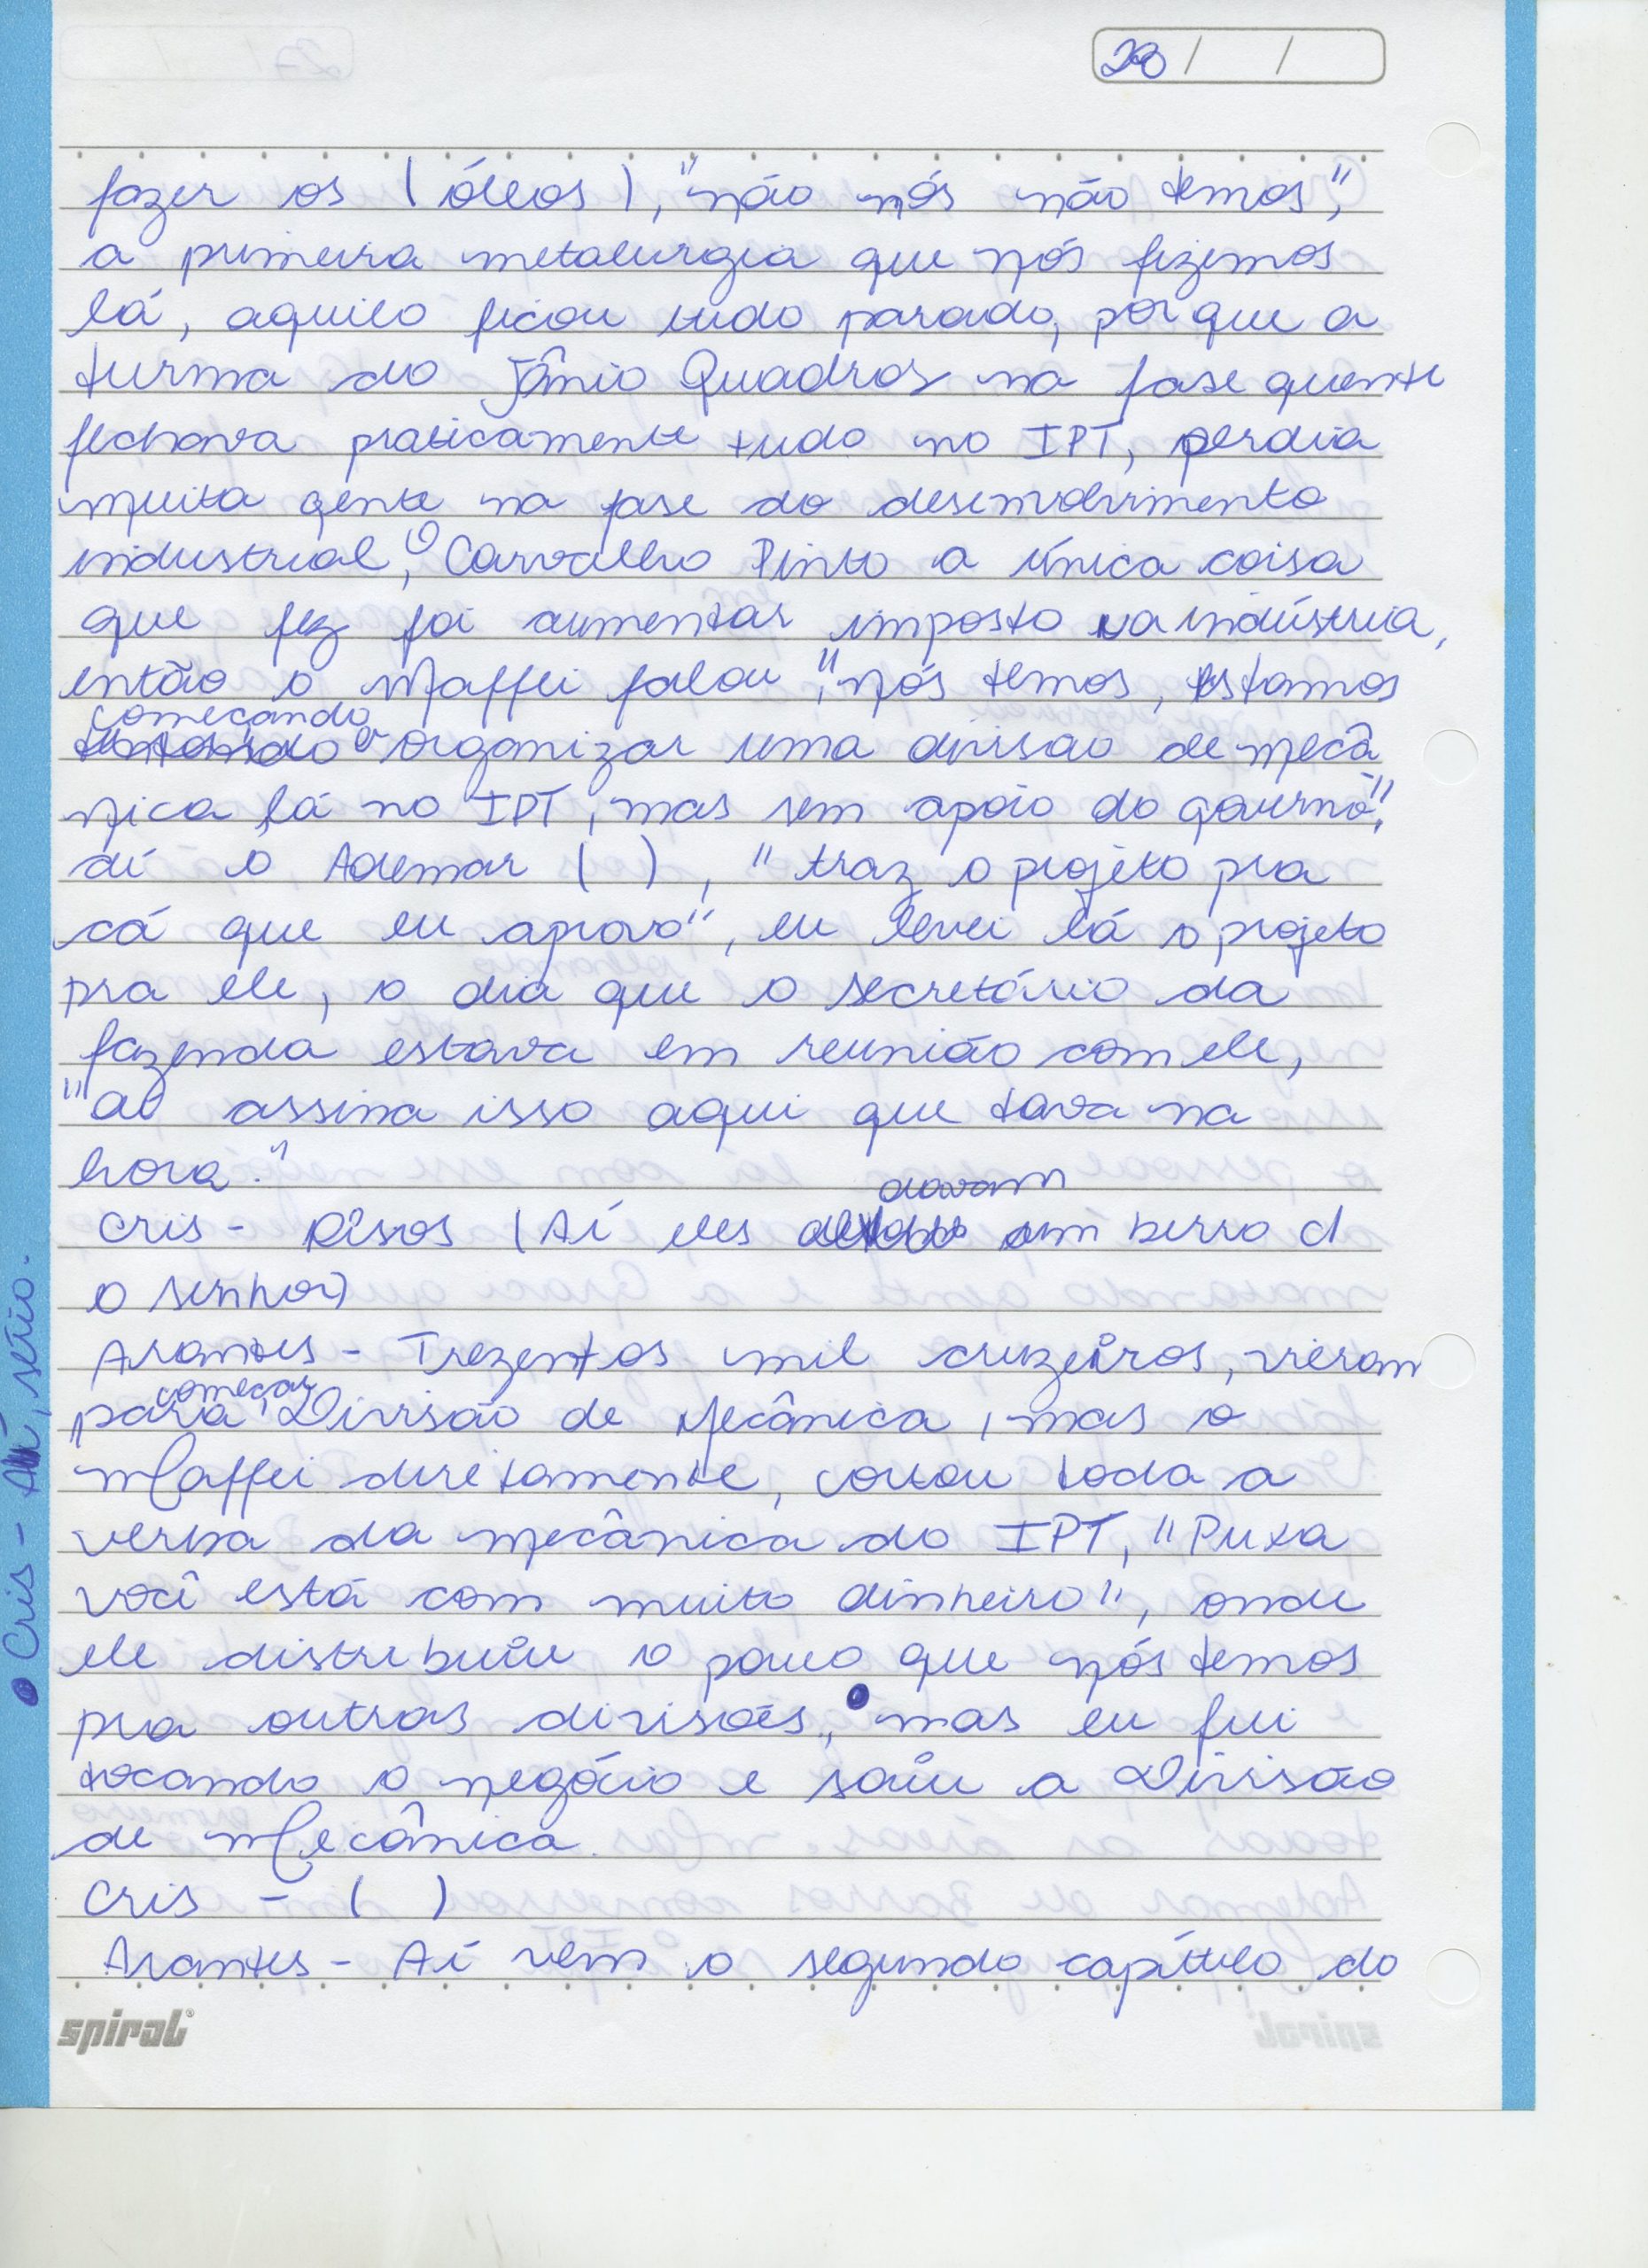 28 / /
fazer os (óleos), "não nós não temos",
a primeira metalurgia que nós fizemos
lá, aquilo ficou tudo parado, porque a
turma do Jânio Quadros na fase quente
fechava praticamente tudo no IPT, perdia
muita gente na fase do desenvolvimento
industrial, o Carvalho Pinto a única coisa
que fez foi aumentar imposto na indústria,
então o Maffei falou, "nós temos, estamos
começando a organizar uma divisão de mecâ
nica lá no IPT, mas sem apoio do governo",
aí o Ademar ( ), "traz o projeto pra
cá que eu aprovo", eu levei lá o projeto
pra ele, o dia que o secretário da
fazenda estava em reunião com ele,
"aó assina isso aqui que tava na
hora."
Cris - Risos (Aí eles davam um berro d
o senhor)
Arantes - Trezentos mil cruzeiros, vieram
para começar Divisão de Mecânica, mas o
Maffei diretamente, cortou toda a
verba da mecânica do IPT, "Puxa
você está com muito dinheiro", onde
ele distribuiu o pouco que nós temos
pra outras divisões, mas eu fui
tocando o negócio e saiu a Divisão
de Mecânica.
Cris - ( )
Arantes - Aí vem o segundo capítulo do
Cris - Aí, sério.
spiral®